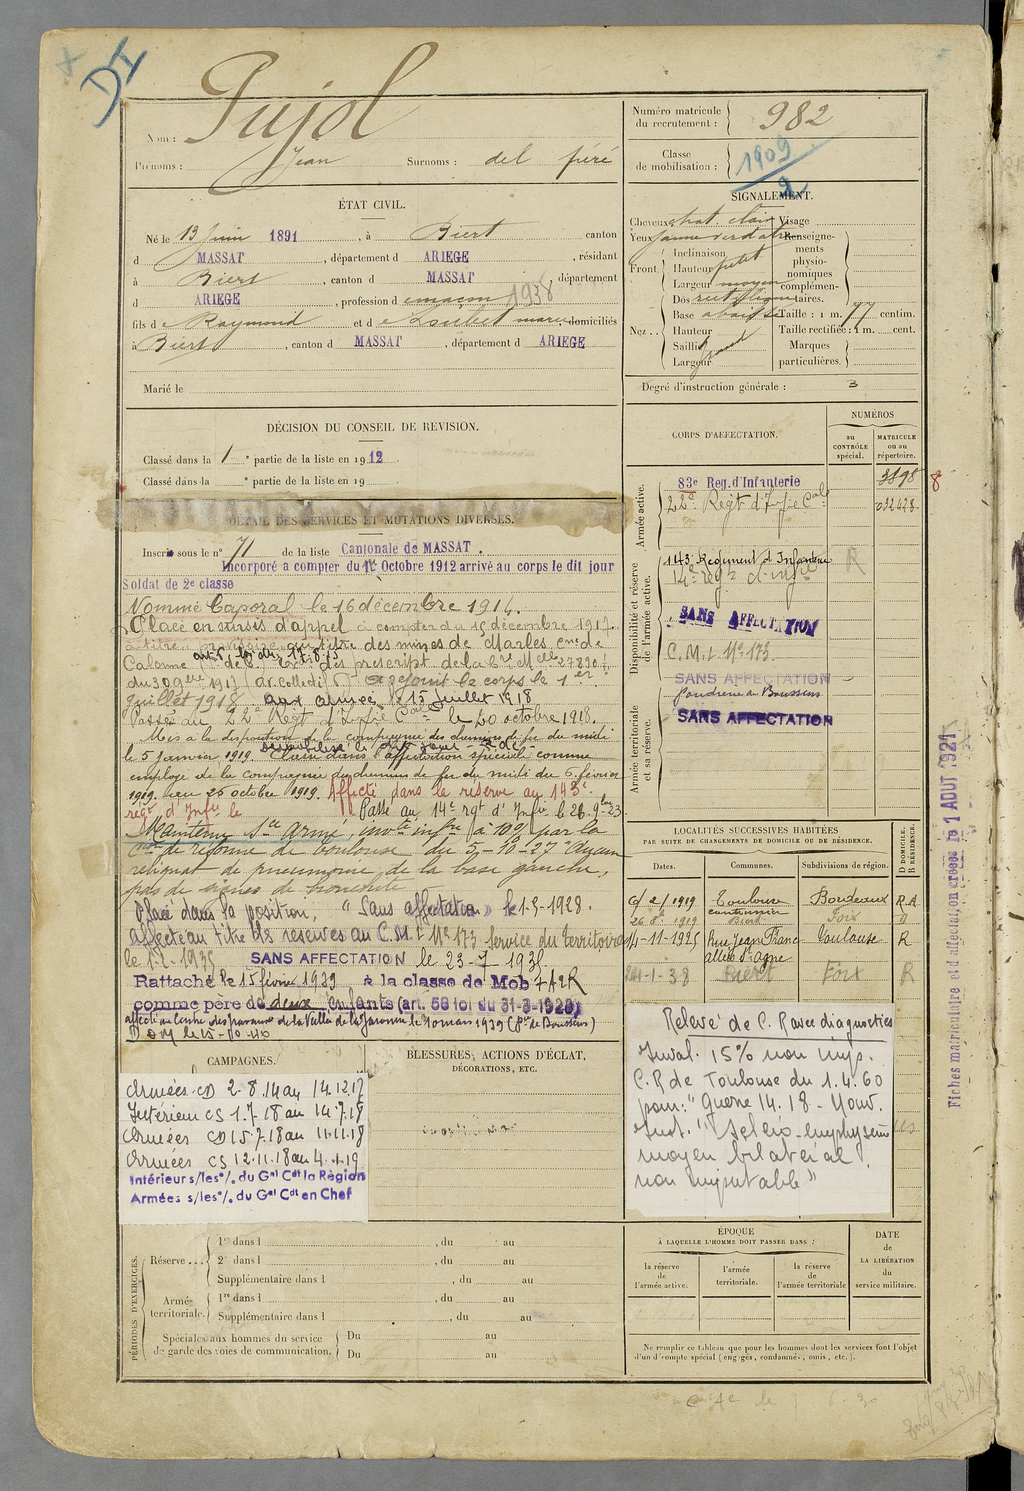 DI
Nom : Pujol
Prénoms : Jean Surnoms : del fréré
Numéro matricule du recrutement : 982
Classe de mobilisation : 1909
2
ÉTAT CIVIL.
Né le 13 Juin 1891, à Biert canton
d MASSAT, département d ARIEGE, résidant
à Biert, canton d MASSAT, département
d ARIEGE, profession de maçon 1938
fils de Raymond et de Loubet marie domiciliés
à Biert, canton d MASSAT, département d ARIEGE
Marié le
SIGNALEMENT.
Cheveux chat. clair Visage
Yeux jaune verdatre Renseignements physionomiques complémentaires.
Front. Inclinaison
Hauteur petit
Largeur moyen
Nez . . Dos rectiligne
Base abaissé Taille : 1 m. 77 centim.
Hauteur Taille rectifiée : 1 m. cent.
Saillie Marques
Largeur particulières.
Degré d'instruction générale : 3
DÉCISION DU CONSEIL DE RÉVISION.
Classé dans la 1e partie de la liste en 1912.
Classé dans la e partie de la liste en 19
DÉTAIL DES SERVICES ET MUTATIONS DIVERSES.
Inscrit sous le n° 71 de la liste Cantonale de MASSAT.
Incorporé a compter du 1c Octobre 1912 arrivé au corps le dit jour
Soldat de 2e classe
Nommé Caporal le 16 décembre 1914.
Placé en sursis d'appel à compter du 15 décembre 1917
à titre provisoire au titre des mines de Marles Cne de
Calonne
juillet 1918 aux armées le 15 Juillet 1918
Passé au 22e Régt d'Infie Cale le 20 octobre 1918.
Mis à la disposition de la compagnie des chemins de fer du midi
le 5 Janvier 1919. Classé dans l'affectation spéciale comme
employé de la compagnie des chemins de fer du midi du 6 février
1919 au 25 octobre 1919. Affecté dans la réserve au 143e
régt d'Infie le Passé au 14e rgt d'Infie le 26.9bre 23
Maintenu Sce armé, invté infre à 10% par la
Cion de réforme de Toulouse du 5-10-27 "Aucun
reliquat de pneumonie de la base gauche,
pas de signes de bronchite
Placé dans la position, "Sans affectation" le 1-5-1928.
Affecté au titre des réserves au C.M.I N° 173 Service du territoire
le 1-2-1935 SANS AFFECTATION le 23-7-1935
Rattaché le 15 février 1939 à la classe de Mob
comme père de deux enfants (art. 58 loi du 31-3-1928)
CORPS D'AFFECTATION.
NUMÉROS
au CONTRÔLE spécial.
MATRICULE ou au répertoire.
Armée active.
83e Reg. d'Infanterie 3898 8
22e Régt d'Infie Cale 032428
Disponibilité et réserve de l'armée active.
143 Régiment d'Infanterie R
14e régt d'Infie
SANS AFFECTATION
C.M.I. N° 173
SANS AFFECTATION
Poudrerie de Boussens
SANS AFFECTATION
Armée territoriale et sa réserve.
LOCALITÉS SUCCESSIVES HABITÉES
PAR SUITE DE CHANGEMENTS DE DOMICILE OU DE RÉSIDENCE.
Dates. Communes. Subdivisions de région. D DOMICILE. R RÉSIDENCE.
6/2/1919 Toulouse Bordeaux R.A.
26 8e 1919 Biert Foix D
4-11-1925 Rue Jean Franc Toulouse R
allée St Agne
24-1-38 Biert Foix R
Relevé de C.R avec diagnostics
Inval. 15% non imp.
C.R de Toulouse du 1.4.60
pour : "Guerre 14.18 - Nouv.
Inst. "Scléro-emphysème
moyen bilatéral
non imputable"
CAMPAGNES.
Armées CD 2.8.14 au 14.12.17
Intérieur CS 1.7.18 au 14.7.18
Armées CD 15.7.18 au 11.11.18
Armées CS 12.11.18 au 4.1.19
Intérieur s/les°/. du Gal Cdt la Région
Armées s/les°/. du Gal Cdt en Chef
BLESSURES, ACTIONS D'ÉCLAT,
DÉCORATIONS, ETC.
PÉRIODES D'EXERCICES.
Réserve . . . 1re dans l , du au
2e dans l , du au
Supplémentaire dans l , du au
Armée territoriale. 1re dans l , du au
Supplémentaire dans l , du au
Spéciales aux hommes du service Du au
de garde des voies de communication. Du au
ÉPOQUE
À LAQUELLE L'HOMME DOIT PASSER DANS :
la réserve de l'armée active.
l'armée territoriale.
la réserve de l'armée territoriale
DATE de LA LIBÉRATION du service militaire.
Ne remplir ce tableau que pour les hommes dont les services font l'objet
d'un décompte spécial (engagés, condamnés, omis, etc.).
Fiches matriculaire et d'affectation créées le 1 AOUT 1921